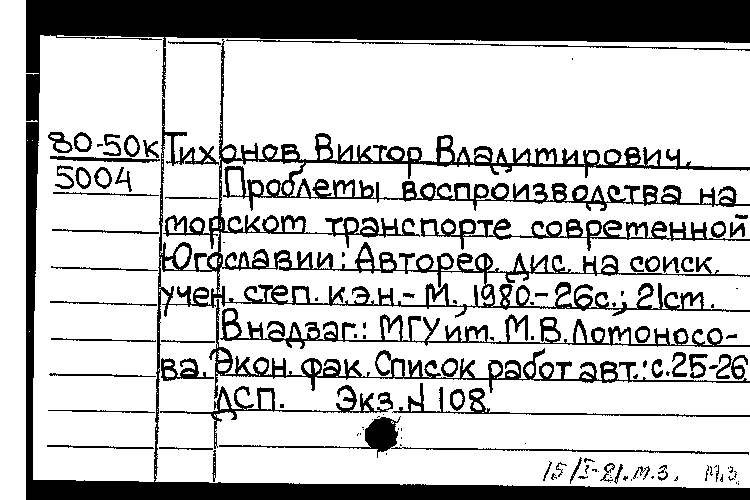 80-50к Тихонов, Виктор Владимирович.
5004 Проблемы воспроизводства на
морском транспорте современной
Югославии: Автореф. дис. на соиск.
учен. степ. к.э.н.- М., 1980.- 26с.; 21см.
В надзаг.: МГУ им. М.В.Ломоносо-
ва. Экон. фак. Список работ авт.: с.25-26
ДСП. Экз. N 108
15/I-81. м.з. м.з